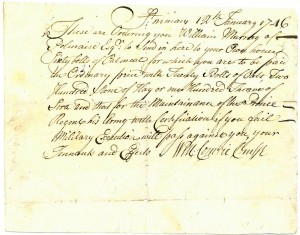 12th January 1746
These are Ordering you William Murray of
Esqr. to Send in here to your Own house
Sixty bolls of Oatmeal for which you are to be paid
the Ordinary price with Twenty Bolls of Oats Two
Hundred Stone of Hay or one Hundred
and that for the Maintainance of the Prince
Regent his Army with Certification if you fail
Military Execution will pass against you, your
Tennents and Effects